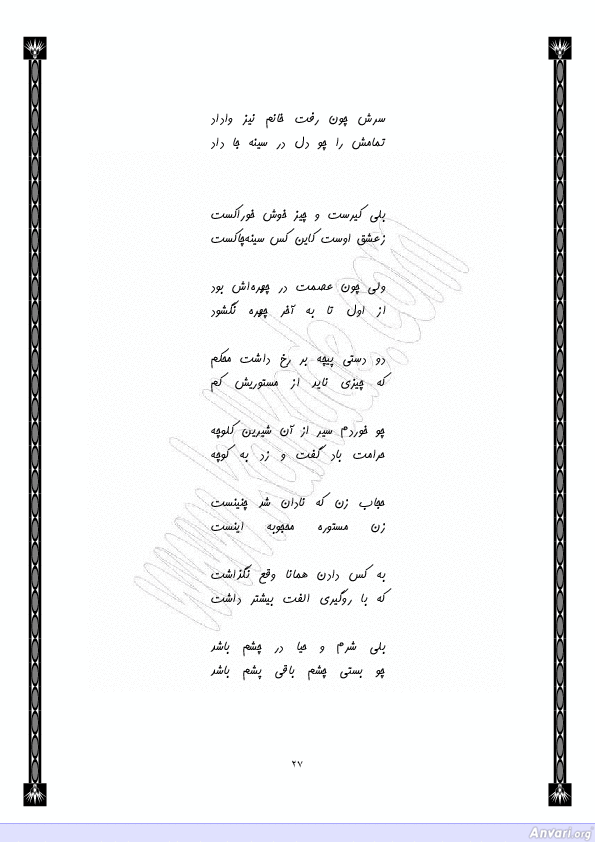 سرش چون رفت خانم نیز وا داد
تمامش را چو دل در سینه جا داد
بلی کیرست و چیز خوش خوراکست
ز عشق اوست کاین کس سینه‌چاکست
ولی چون عصمت در چهره‌اش بود
از اول تا به آخر چهره نگشود
دو دستی پیچه بر رخ داشت محکم
که چیزی ناید از مستوریش کم
چو خوردم سیر از آن شیرین کلوچه
حرامت باد گفت و زد به کوچه
حجاب زن که نادان شد چنینست
زن مستوره محجوبه اینست
به کس دادن همانا وقع نگذاشت
که با روگیری الفت بیشتر داشت
بلی شرم و حیا در چشم باشد
چو بستی چشم باقی پشم باشد
۲۷
www.kaktube.com
Anvari.org